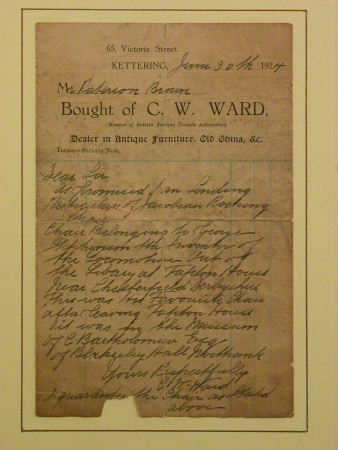 65, Victoria Street,
KETTERING, June 30th 1924
Mr Paterson Brown
Bought of C. W. WARD,
(Member of British Antique Dealers Association)
Dealer in Antique Furniture, Old China, &c.
Terms—Strictly Nett.
Dear Sir
As Promised I am Sending
Particulars of Jacobean Rocking
Chair
Chair Belonging to George
Stephenson the Inventor of
the Locomotive Out of
the Libary at Tapton House
Near Chesterfield Derbyshire
This was his Favourite Chair
after leaving Tapton House
it was in the Museum
of C Bartholomew Esq
of Blakesley Hall Northants
Yours Respectfully
C W Ward
I guarantee the Chair as Stated
above